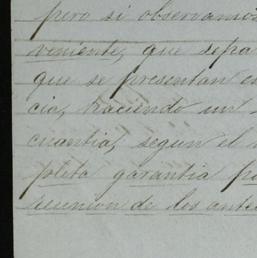 pero si observamos
veniente, que sepa
que se presentan en
cia, haciendo un
cuantia, segun el
pleta garantia po
reunion de los ante